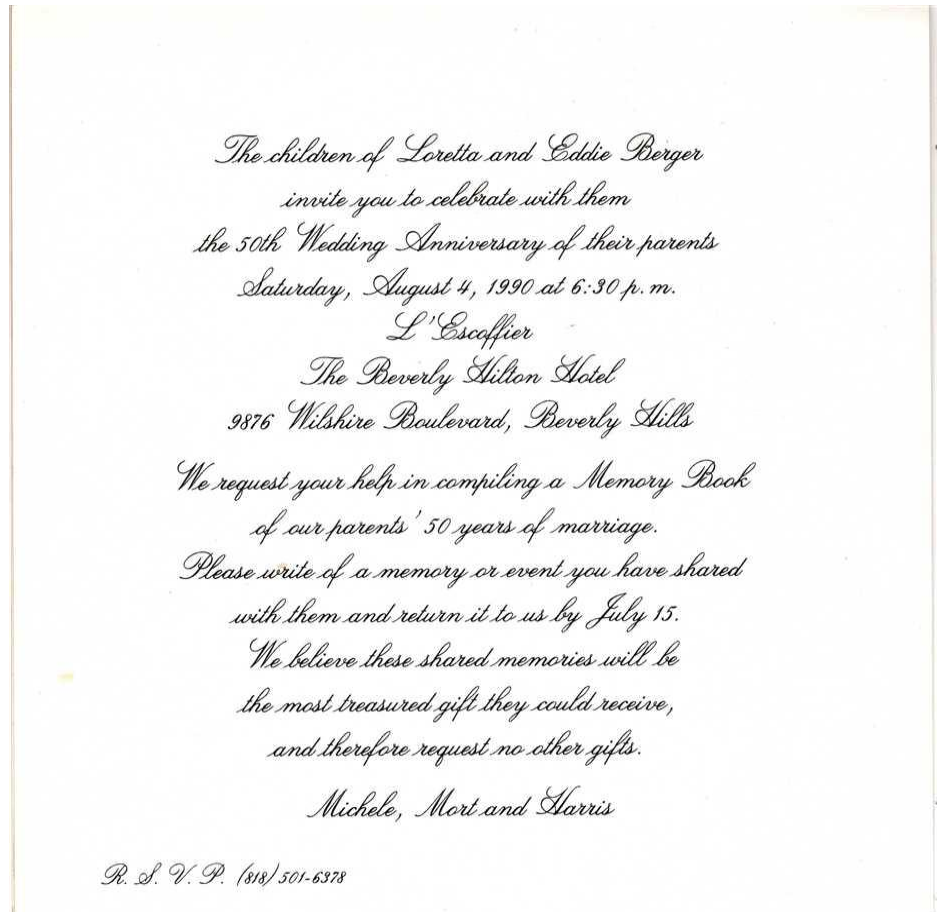 The children of Loretta and Eddie Berger
invite you to celebrate with them
the 50th Wedding Anniversary of their parents
Saturday, August 4, 1990 at 6:30 p.m.
L'Escoffier
The Beverly Hilton Hotel
9876 Wilshire Boulevard, Beverly Hills
We request your help in compiling a Memory Book
of our parents' 50 years of marriage.
Please write of a memory or event you have shared
with them and return it to us by July 15.
We believe these shared memories will be
the most treasured gift they could receive,
and therefore request no other gifts.
Michele, Mort and Harris
R. S. V. P. (818) 501-6378